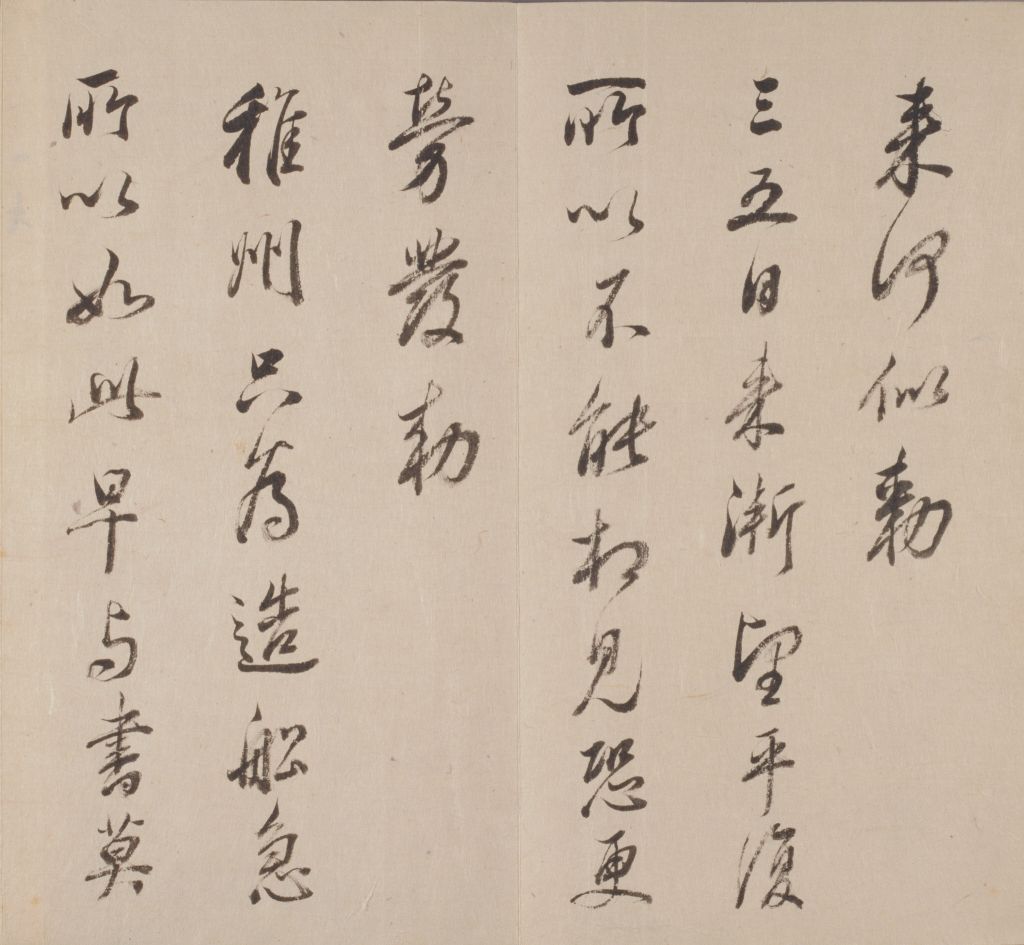 来何似勅
三五日来漸望平復
所以不能相見恐更
勞發勅
雅州只為造船急
所以如此早与書莫